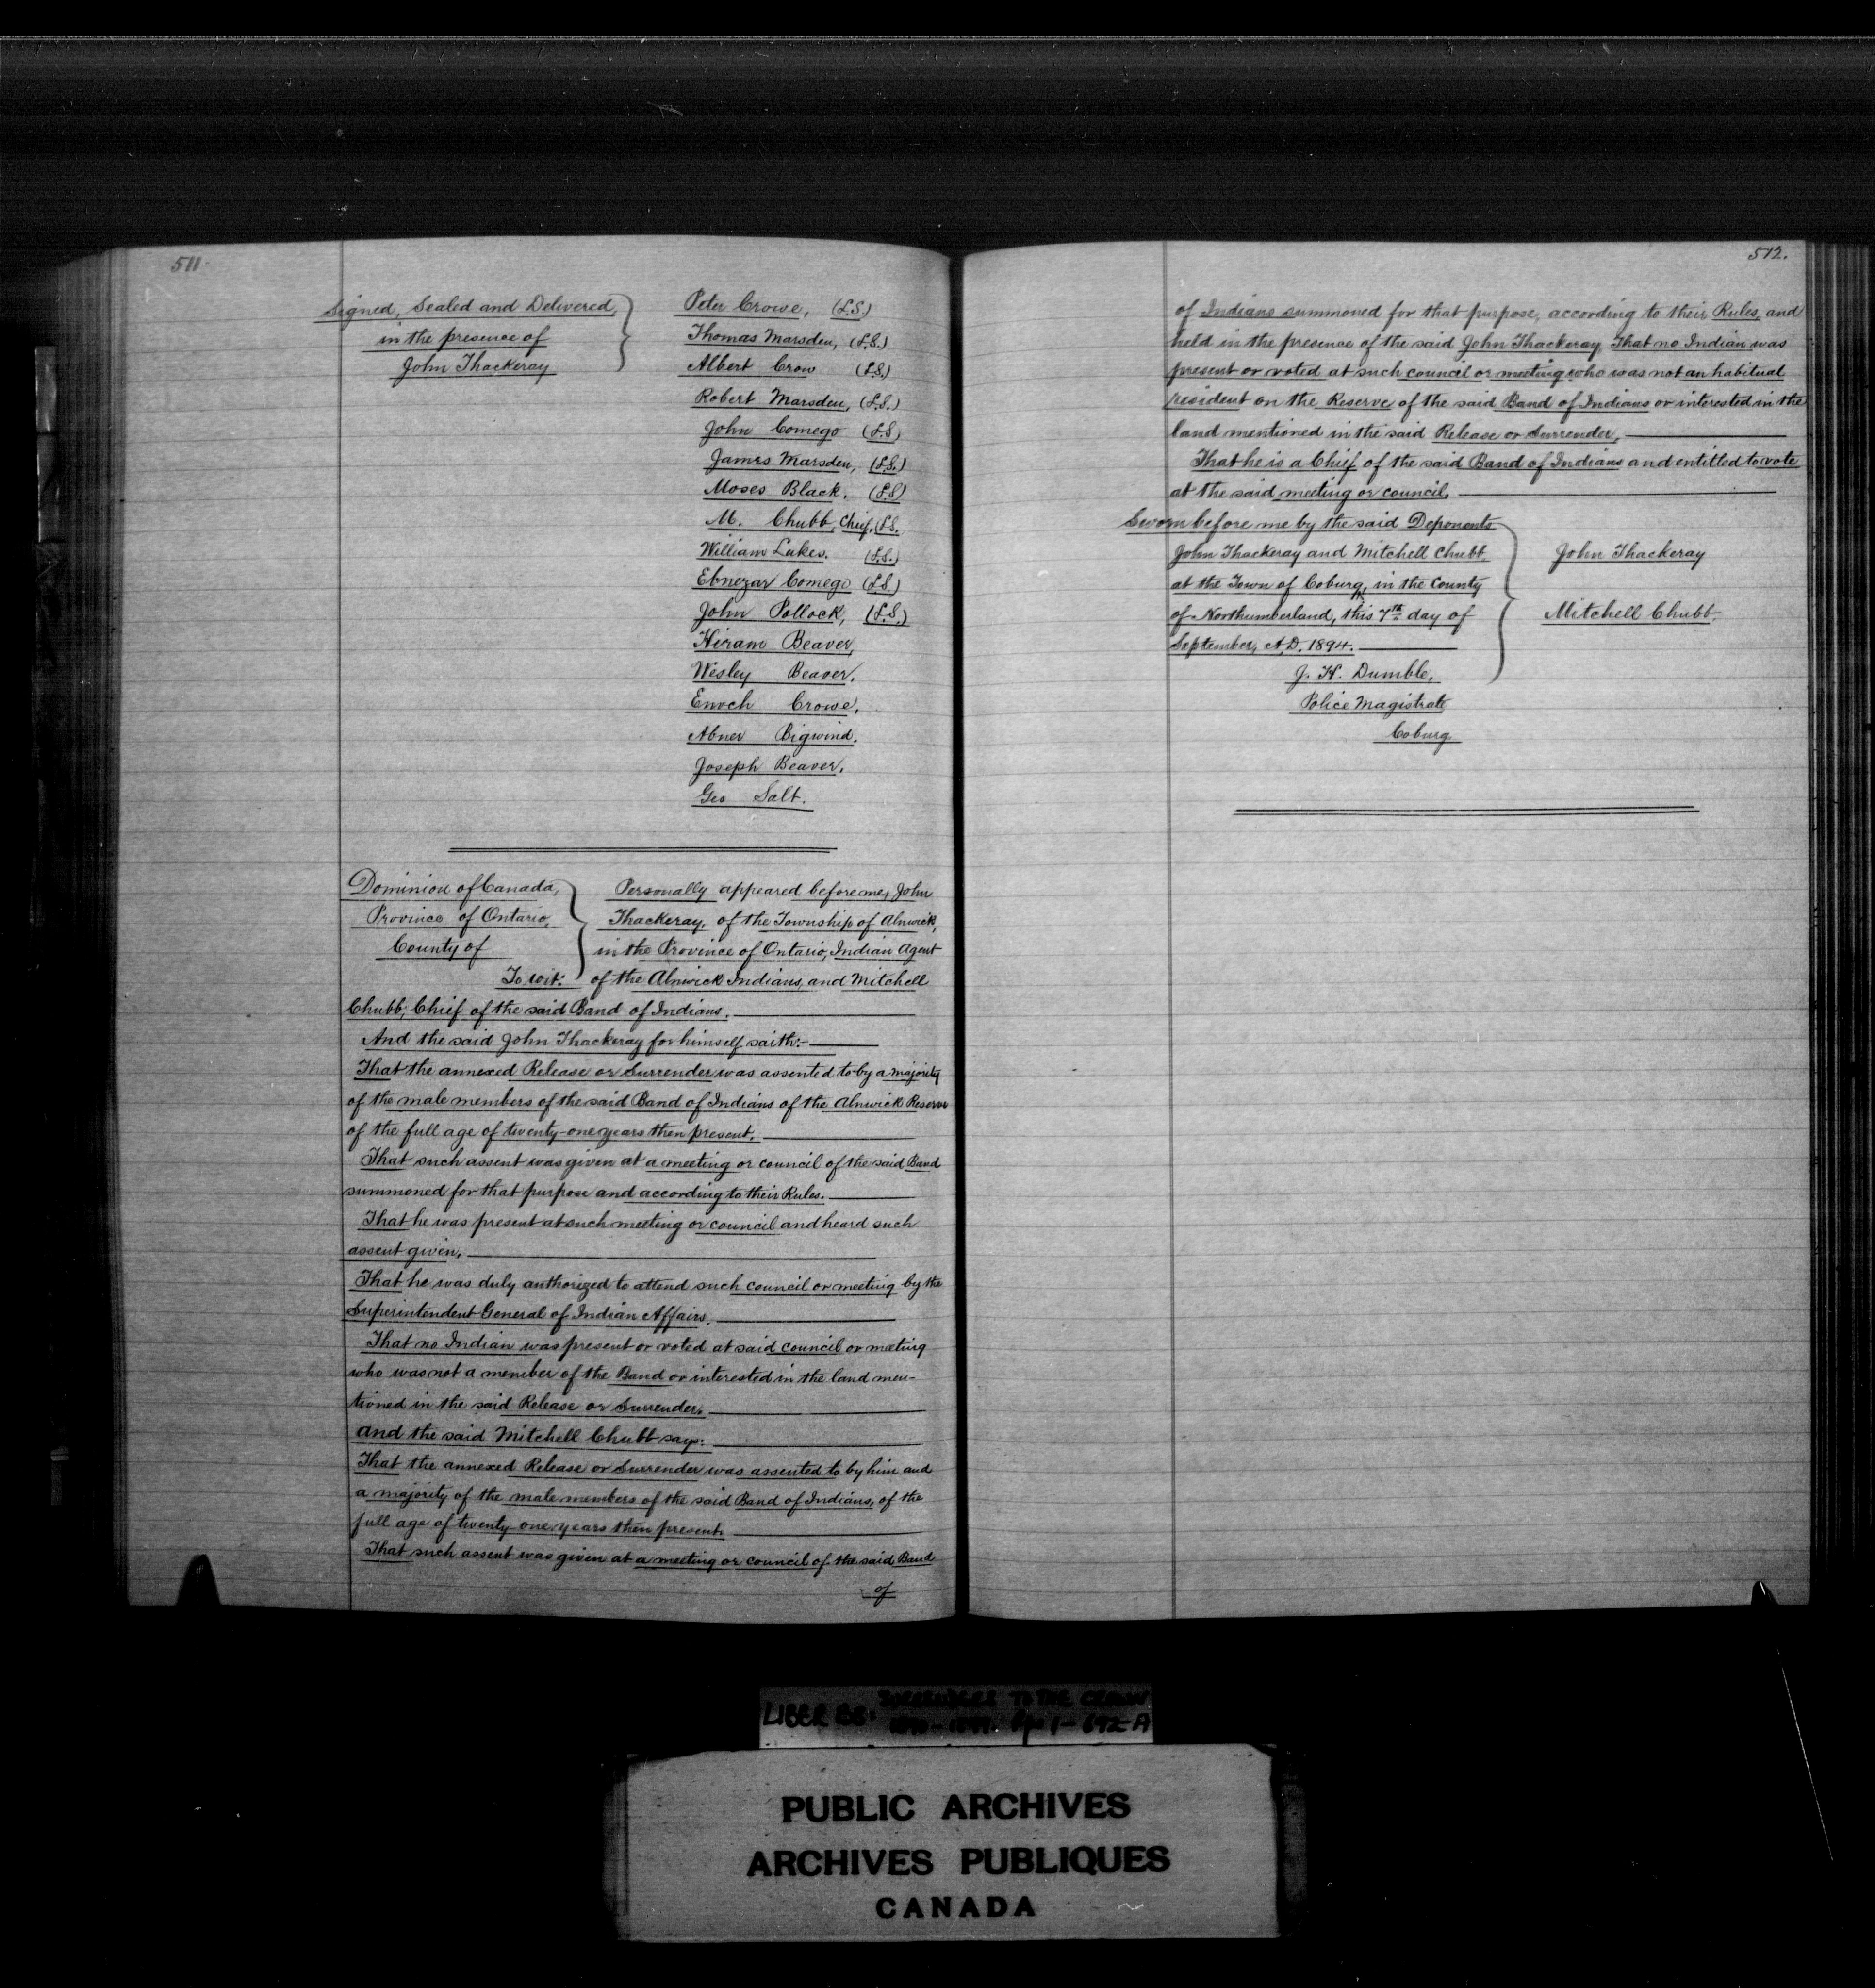 511.
Signed, Sealed and Delivered,
in the presence of
John Thackeray
Peter Crowe, (L.S.)
Thomas Marsden, (L.S.)
Albert Crow (L.S.)
Robert Marsden, (L.S.)
John Comego (L.S)
James Marsden, (L.S.)
Moses Black. (L.S)
M. Chubb, Chief, (L.S.
William Lukes. (L.S.)
Ebnezar Comego (L.S.)
John Pollock, (L.S.)
Hiram Beaver,
Wesley Beaver.
Enoch Crowe,
Abner Bigwind.
Joseph Beaver.
Geo Salt.
Dominion of Canada,
Province of Ontario,
County of
To wit:
Personally appeared before me, John
Thackeray, of the Township of Alnwick,
in the Province of Ontario, Indian Agent
of the Alnwick Indians, and Mitchell
Chubb, Chief of the said Band of Indians.
And the said John Thackeray for himself saith:-
That the annexed Release or Surrender was assented to by a majority
of the male members of the said Band of Indians of the Alnwick Reserve
of the full age of twenty-one years then present.
That such assent was given at a meeting or council of the said Band
summoned for that purpose and according to their Rules.
That he was present at such meeting or council and heard such
assent given.
That he was duly authorized to attend such council or meeting by the
Superintendent General of Indian Affairs.
That no Indian was present or voted at said council or meeting
who was not a member of the Band or interested in the land men-
tioned in the said Release or Surrender.
and the said Mitchell Chubb says:
That the annexed Release or Surrender was assented to by him and
a majority of the male members of the said Band of Indians, of the
full age of twenty-one years then present.
That such assent was given at a meeting or council of the said Band
of
512.
of Indians summoned for that purpose, according to their Rules, and
held in the presence of the said John Thackeray. That no Indian was
present or voted at such council or meeting who was not an habitual
resident on the Reserve of the said Band of Indians or interested in the
land mentioned in the said Release or Surrender.
That he is a Chief of the said Band of Indians and entitled to vote
at the said meeting or council.
Sworn before me by the said Deponents
John Thackeray and Mitchell Chubb
at the Town of Coburg, in the County
of Northumberland, this 7th day of
September, A.D. 1894.
J. H. Dumble,
Police Magistrate
Coburg.
John Thackeray
Mitchell Chubb.
LIBER BB: SURRENDERS TO THE CROWN
PUBLIC ARCHIVES
ARCHIVES PUBLIQUES
CANADA